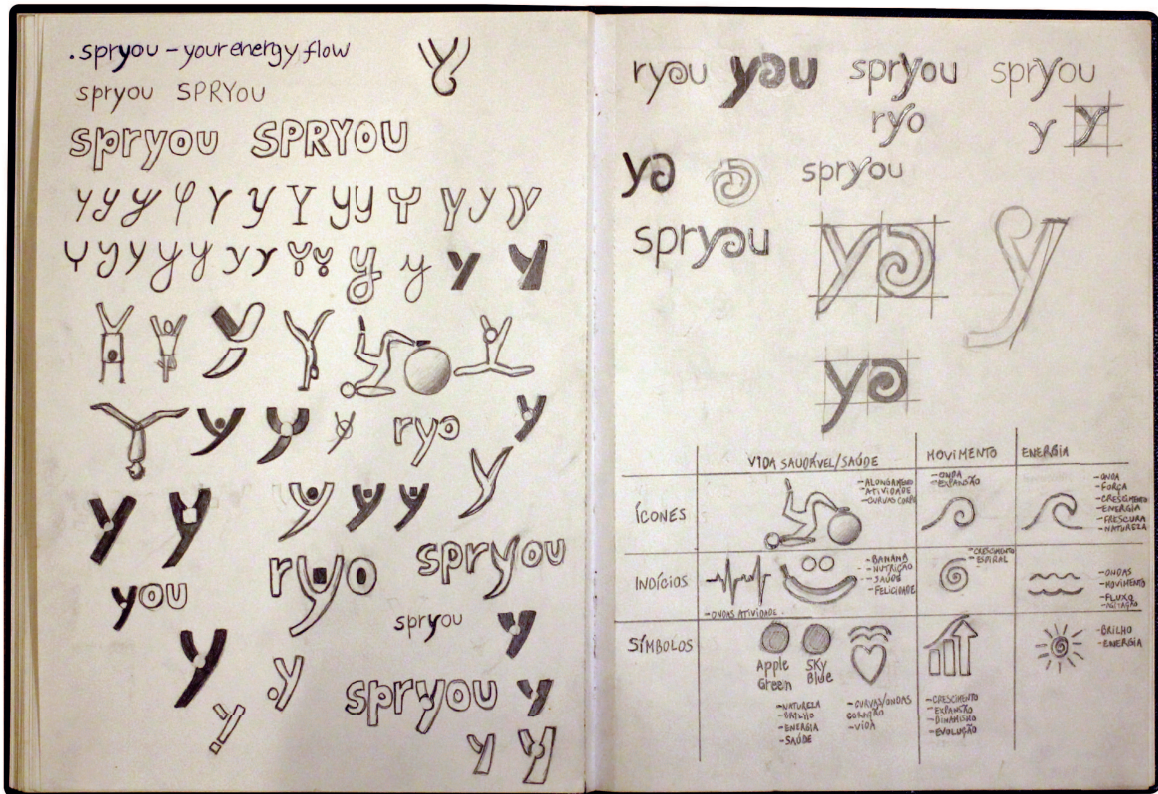 .spryou – your energy flow
y
spryou SPRYOU
spryou SPRYOU
y y y φ Y y Y y y Y y y y
Y y y y y y y y y y y y y
y
ryo y
y
y y y y y
you ryo spryou
spryou y
y y
spryou y
y y
ryou you spryou spryou
ryo y y
ya spryou
spryou ya y
ya
VIDA SAUDÁVEL/SAÚDE MOVIMENTO ENERGIA
ÍCONES
-ALONGAMENTO
-ATIVIDADE
-CURVAS CORPO
-ONDA
-EXPANSÃO
-ONDA
-FORÇA
-CRESCIMENTO
-ENERGIA
-FRESCURA
-NATUREZA
INDÍCIOS
-ONDAS ATIVIDADE
-BANANA
-NUTRIÇÃO
-SAÚDE
-FELICIDADE
-CRESCIMENTO
-ESPIRAL
-ONDAS
-MOVIMENTO
-FLUXO
-AGITAÇÃO
SÍMBOLOS
Apple Green
Sky Blue
-NATUREZA
-BRILHO
-ENERGIA
-SAÚDE
-CURVAS/ONDAS
CORAÇÃO
-VIDA
-CRESCIMENTO
-EXPANSÃO
-DINAMISMO
-EVOLUÇÃO
-BRILHO
-ENERGIA